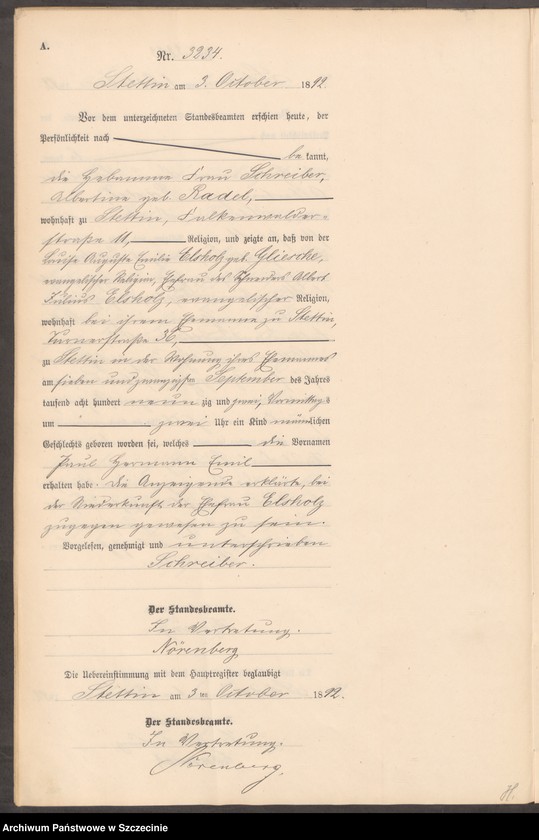 A.
Nr. 3234.
Stettin am 3. October 1892.
Vor dem unterzeichneten Standesbeamten erschien heute, der
Persönlichkeit nach
bekannt,
die Hebamme Frau Schreiber,
Albertine geb. Radel,
wohnhaft zu Stettin, Falkenwalder-
straße 11, Religion, und zeigte an, daß von der
Louise Auguste Emilie Elsholz geb. Gliesche,
evangelischer Religion, Ehefrau des Schneiders Albert
Julius Elsholz, evangelischer Religion,
wohnhaft bei ihrem Ehemanne zu Stettin,
Turnerstraße
zu Stettin in der Wohnung ihres Ehemannes
am sieben und zwanzigsten September des Jahres
tausend acht hundert neunzig und zwei, Vormittags
um zwei Uhr ein Kind männlichen
Geschlechts geboren worden sei, welches die Vornamen
Paul Hermann Emil
erhalten habe. Die Anzeigende erklärte, bei
der Niederkunft der Ehefrau Elsholz
zugegen gewesen zu sein.
Vorgelesen, genehmigt und unterschrieben
Schreiber.
Der Standesbeamte.
In Vertretung.
Nörenberg
Die Uebereinstimmung mit dem Hauptregister beglaubigt
Stettin am 3ten October 1892.
Der Standesbeamte.
In Vertretung.
Nörenberg.
Archiwum Państwowe w Szczecinie